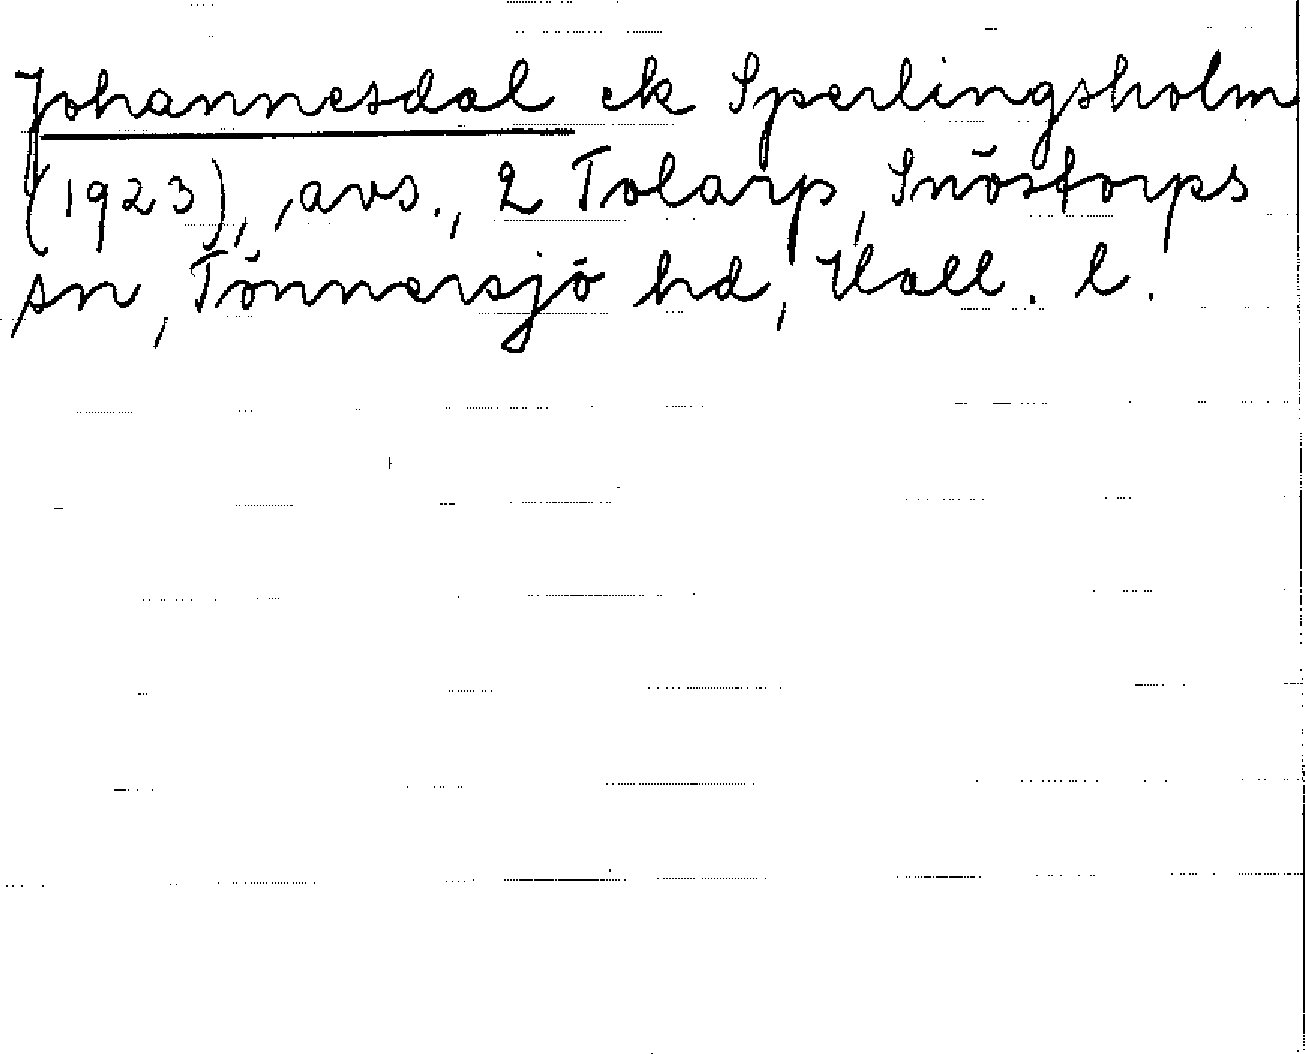 Johannesdal ek Sperlingsholm
(1923), ,avs., 2 Tolarp, Snöstorps
sn, Tönnersjö hd, Hall. l.